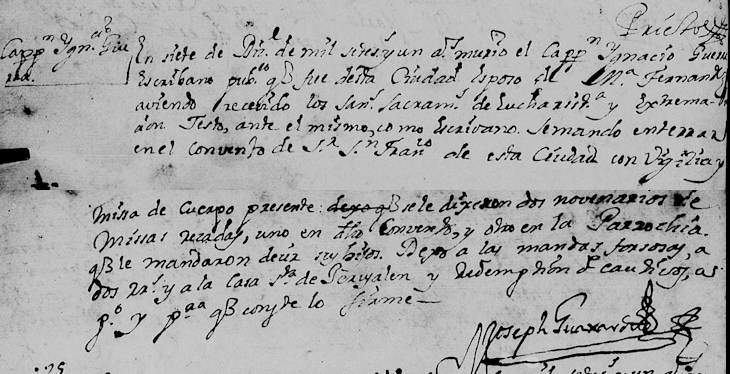 Prieto
Capp.n Ygn.o Gue
rra.
En siete de Diz.e de mil setes.s y un a.s murio el Capp.n Ygnacio Guerra
Escribano pub.co q̄ fue desta Ciudad esposo de M.a Fernand
aviendo recevido los San.s Sacram.s de Eucharist.a y extrema-
on Testo, ante el mismo, como Escrivano. Se mando enterrar
en el Convento de S.r S.n Fran.co de esta Ciudad con Vigilia y
Missa de cuerpo presente. dexo q̄ se le dixeron dos novenarios de
Missas rezadas, uno en dho Convento, y otro en la Parrochia
q̄ le mandaron decir sus hijos. Dexo a las mandas forsosas, a
dos r.s y a la Casa S.ta de Jerusalen y redemption de cautivos, a
p.o y p.a q̄ conste lo firme—
Joseph Guaxardo